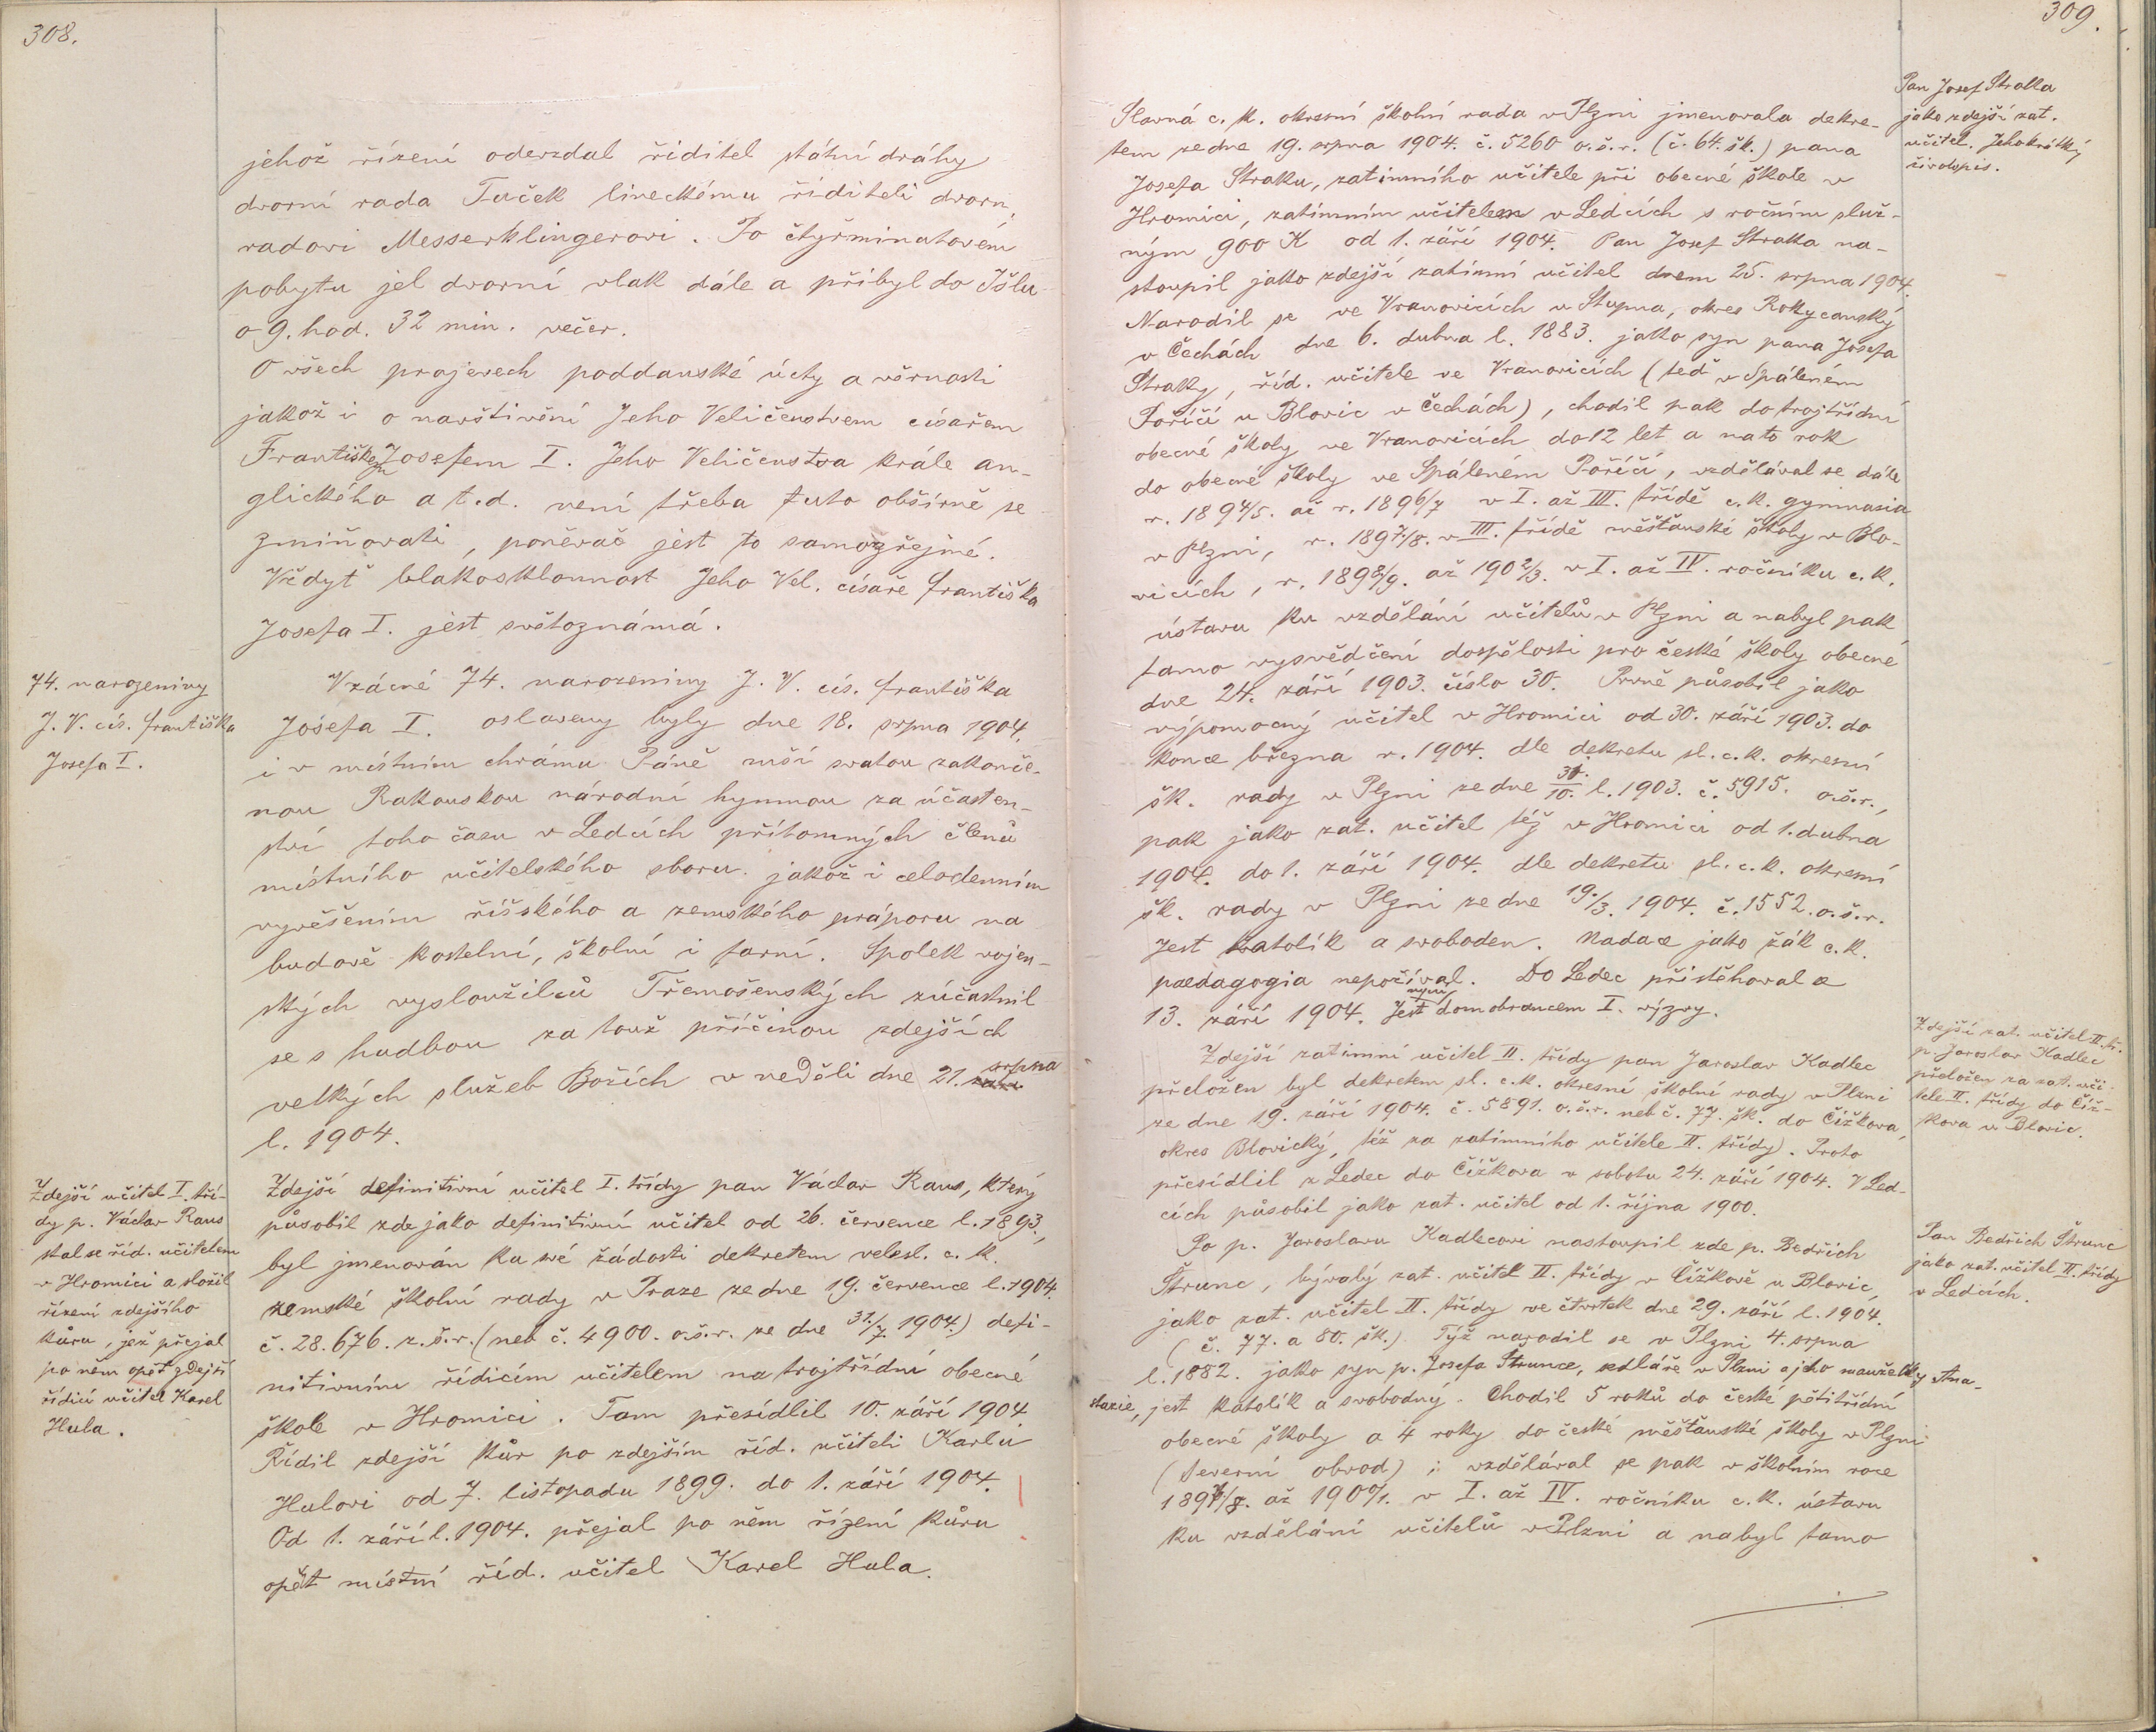 308.
jehož řízení oderzdal řiditel státní dráhy
dvorní rada Tuček lineckému řiditeli dvorn.
radovi Messerklingerovi. Po čtyřminutovém
pobytu jel dvorní vlak dále a přibyl do Išlu
o 9. hod. 32 min. večer.
O všech projevech poddanské úcty a věrnosti
jakož i o navštívění Jeho Veličenstvem císařem
Františkem Josefem I. Jeho Veličenstva krále an-
glického a t.d. není třeba tuto obšírně se
zmiňovati, poněvač jest to samozřejmé.
Vždyť blakosklonnost Jeho Vel. císaře Františka
Josefa I. jest světoznámá.
74. narozeniny
J. V. cís. Františka
Josefa I.
Vzácné 74. narozeniny J. V. cís. Františka
Josefa I. oslaveny byly dne 18. srpna 1904.
i v místním chrámu Páně mší svatou zakonče-
nou Rakouskou národní hymnou za účasten-
ství toho času v Ledcích přítomných členů
místního učitelského sboru jakož i celodenním
vyvěšením říšského a zemského práporu na
budově kostelní, školní i farní. Spolek vojen-
ských vysloužilců Třemošenských zúčastnil
se s hudbou za touž příčinou zdejších
velkých služeb Božích v neděli dne 21. srpna
l. 1904.
Zdejší učitel I. tří-
dy p. Václav Raus
stal se říd. učitelem
v Hromici a složil
řízení zdejšího
kůru, jež přejal
po něm opět zdejší
řídící učitel Karel
Hula.
Zdejší definitivní učitel I. třídy pan Václav Raus, který
působil zde jako definitivní učitel od 26. července l. 1893.,
byl jmenován ku své žádosti dekretem velesl. c. k.
zemské školní rady v Praze ze dne 19. července l. 1904.
č. 28.676. z.š.r. (neb č. 4900. o.š.r. ze dne 31./7. 1904.) defi-
nitivním řídícím učitelem na trojtřídní obecné
škole v Hromici. Tam přesídlil 10. září 1904
Řídil zdejší kůr po zdejším říd. učiteli Karlu
Hulovi od 7. listopadu 1899. do 1. září 1904.
Od 1. září l. 1904. přejal po něm řízení kůru
opět místní říd. učitel Karel Hula.
309.
Pan Josef Straka
jako zdejší zat.
učitel. Jeho krátký
životopis.
Slavná c. k. okresní školní rada v Plzni jmenovala dekre-
tem ze dne 19. srpna 1904. č. 5260 o.š.r. (č. 64. šk.) pana
Josefa Straku, zatímního učitele při obecné škole v
Hromici, zatímním učitelem v Ledcích s ročním služ-
ným 900 K od 1. září 1904. Pan Josef Straka na-
stoupil jako zdejší zatímní učitel dnem 25. srpna 1904.
Narodil se ve Vranovicích u Stupna, okres Rokycanský
v Čechách dne 6. dubna l. 1883. jako syn pana Josefa
Straky, říd. učitele ve Vranovicích (teď v Spáleném
Poříčí u Blovic v Čechách), chodil pak do trojtřídní
obecné školy ve Vranovicích do 12 let a nato rok
do obecné školy ve Spáleném Poříčí, vzdělával se dále
r. 1894/5. až r. 1896/7 v I. až III. třídě c. k. gymnasia
v Plzni, r. 1897/8. v III. třídě měšťanské školy v Blo-
vicích, r. 1898/9. až 1902/3. v I. až IV. ročníku c. k.
ústavu ku vzdělání učitelů v Plzni a nabyl pak
tamo vysvědčení dospělosti pro české školy obecné
dne 24. září 1903. číslo 30. Prvně působil jako
výpomocný učitel v Hromici od 30. září 1903. do
konce března r. 1904. dle dekretu sl. c. k. okresní
šk. rady v Plzni ze dne 31./10. l. 1903. č. 5915. o.š.r.,
pak jako zat. učitel též v Hromici od 1. dubna
1904. do 1. září 1904. dle dekretu sl. c. k. okresní
šk. rady v Plzni ze dne 19./3. 1904. č. 1552. o.š.r.
Jest katolík a svoboden. Nadace jako žák c. k.
paedagogia nepožíval. Do Ledec přistěhoval se
13. září 1904. Jest nyní domobrancem I. výzvy.
Zdejší zat. učitel II. tř.
p. Jaroslav Kadlec
přeložen za zat. uči-
tele II. třídy do Číž-
kova u Blovic.
Zdejší zatímní učitel II. třídy pan Jaroslav Kadlec
přeložen byl dekretem sl. c. k. okresní školní rady v Plzni
ze dne 19. září 1904. č. 5891. o.š.r. neb č. 77. šk. do Čížkova,
okres Blovický, též za zatímního učitele II. třídy). Proto
přesídlil z Ledec do Čížkova v sobotu 24. září 1904. V Led-
cích působil jako zat. učitel od 1. října 1900.
Pan Bedřich Štrunc
jako zat. učitel II. třídy
v Ledcích.
Po p. Jaroslavu Kadlecovi nastoupil zde p. Bedřich
Štrunc, bývalý zat. učitel II. třídy v Čížkově u Blovic,
jako zat. učitel II. třídy ve čtvrtek dne 29. září l. 1904.
(č. 77. a 80. šk.). Týž narodil se v Plzni 4. srpna
l. 1882. jako syn p. Josefa Štrunce, sedláře v Plzni a jeho manželky Ana-
stazie, jest katolík a svobodný. Chodil 5 roků do české pětitřídní
obecné školy a 4 roky do české měšťanské školy v Plzni
(severní obvod); vzdělával se pak v školním roce
1897/8. až 1900/1. v I. až IV. ročníku c. k. ústavu
ku vzdělání učitelů v Plzni a nabyl tamo